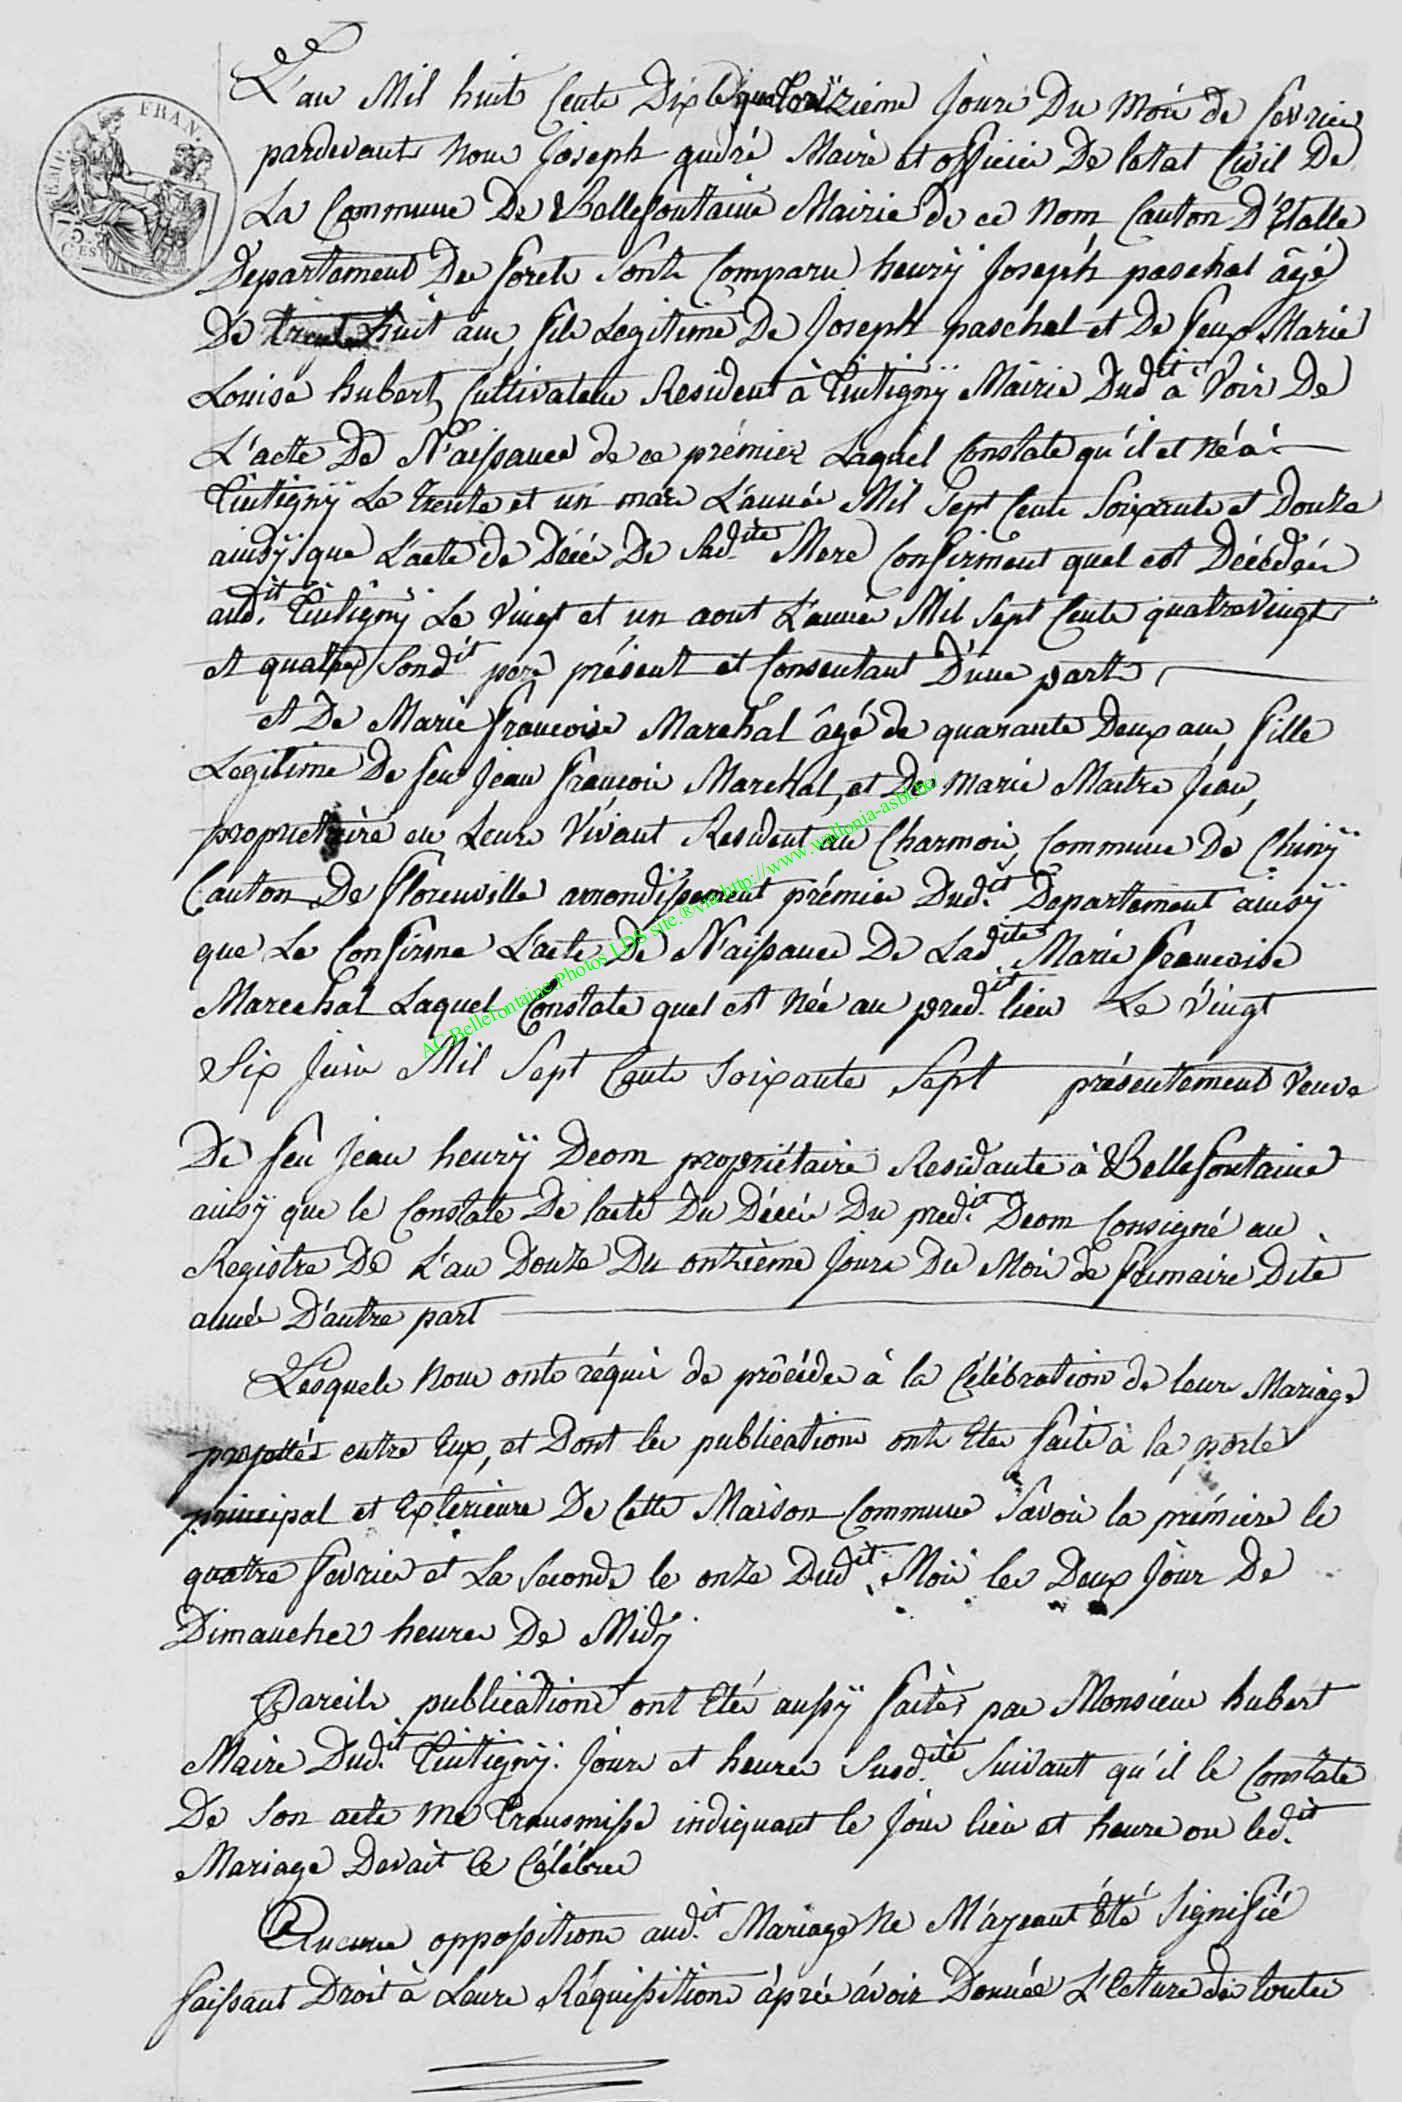 L'an Mil huit Cents Dix le quatorzieme Jours Du Mois de fevrier
pardevants Nous Joseph gudré Maire et officier De letat Civil De
La Commune De Bellefontaine Mairie de ce Nom Canton D'Etalle
Departement Des forets Sonts Comparu henrÿ Joseph paschal âgé
De trente huit ans, fils Legitime De Joseph paschal et De feux Marie
Louise hubert, Cultivateur Resident à Tintignÿ Mairie Dudit à Voir De
L'acte De Naissance de ce prémier Laquel Constate qu'il et Né à
Tintignÿ Le Trente et un mars L'année Mil Sept Cents Soixante et Douze
ainsÿ que L'acte de Décés De Sadite Mere Confirment quel est Décédée
audit Tintignÿ Le Vingt et un aout L'année Mil Sept Cents quatre Vingt
et quatre Sondit pere présent et Consentant D'une part,
et De Marie françoise Marchal âgé de quarante Deux ans, fille
Legitime De feu Jean francois Marchal, et De Marie Maitre Jean,
proprietaire en Leurs Vivant Resident au Charmois, Commune De Chinÿ
Canton De florenville arrondissement prémier Dudit Departement ainsÿ
que Le Confirme L'acte De Naissance De Ladite Marie francoise
Marechal Laquel Constate quel est Née au predit lieu Le Vingt
Six Juin Mil Sept Cents Soixante Sept présentement Veuve
De feu Jean henrÿ Deom propriétaire Residante à Bellefontaine
ainsÿ que le Constate De l'acte Du Décés Du predit Deom Consigné au
Registre De L'an Douze Du onzième Jours Du Mois de frimaire Dite
année D'autre part
Lesquels Nous onts réquis de procéder à la Célébration de leurs Mariage
projettés entre Eux, et Dont les publications onts Etes faite à la porte
principal et Exterieure De Cette Maison Commune Savoir la prémiere le
quatre fevrier et La Seconde le onze Dudit Mois les Deux Jour De
Dimanches heures De Midÿ
Pareils publications ont Eté aussÿ faites par Monsieur hubert
Maire Dudit Tintignÿ. Jours et heures Susdite Suivant qu'il le Constate
De Son acte me Transmisse indiquant le Jour lieu et heure ou ledit
Mariage Devait Ce Célébrer
Aucune oppositions audit Mariage Ne M'ayeant Été Signifié
faissant Droit à Leurs Réquisitions áprés ávoir Donnée L'Ecture de toutes
FRAN.
EMP.
75
CES
AC Bellefontaine.Photos LDS site.®via http://www.wallonia-asbl.be/